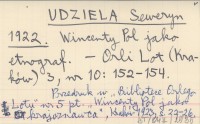 UDZIELA Seweryn
1922. Wincenty Pol jako
etnograf. - Orli Lot (Kra-
ków) 3, nr 10: 152-154.
Przedruk w „Bibliotece Orlego
Lotu" nr 5 pt. „Wincenty Pol jako
krajoznawca", Kraków 1923, s. 22-26.